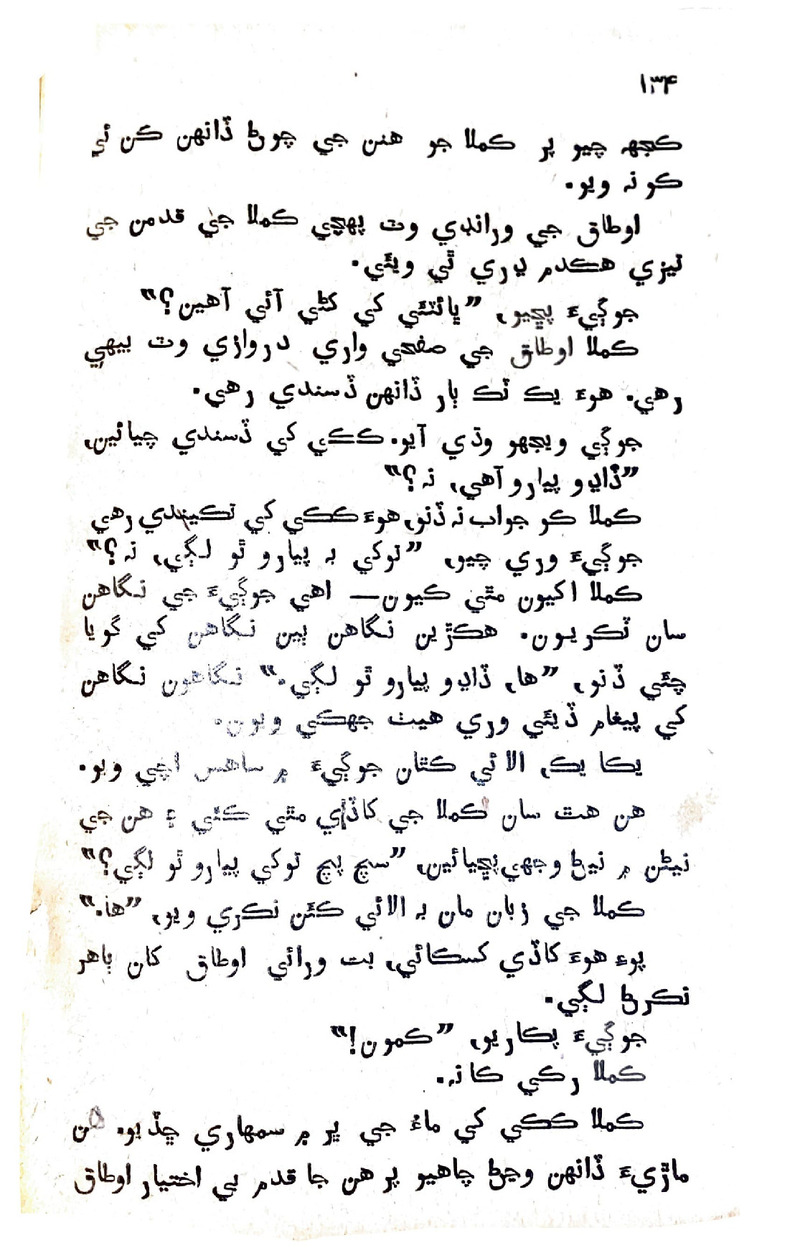 ۱۳۴
ڪجهہ چيو پر ڪملا جو هنن جي چوڻ ڏانهن ڪن ئي
ڪو نہ ويو.
اوطاق جي ورانڊي وٽ پهچي ڪملا جي قدمن جي
تيزي هڪدم ڍري ٿي ويئي.
جوڳيءَ پڇيو، ”ڀائٽئي کي کڻي آئي آهين؟“
ڪملا اوطاق جي صفحي واري دروازي وٽ بيهي
رهي. هوءَ يڪ ٽڪ ٻار ڏانهن ڏسندي رهي.
جوڳي ويجهو وڌي آيو. ڪڪي کي ڏسندي چيائين،
”ڏاڍو پيارو آهي، نہ؟“
ڪملا ڪو جواب نہ ڏنو، هوءَ ڪڪي کي تڪيندي رهي
جوڳيءَ وري چيو، ”توکي بہ پيارو ٿو لڳي، نہ؟“
ڪملا اکيون مٿي کيون— اهي جوڳيءَ جي نگاهن
سان ٽڪريون. هڪڙين نگاهن ٻين نگاهن کي گويا
چئي ڏنو، ”ها، ڏاڍو پيارو ٿو لڳي.“ نگاهون نگاهن
کي پيغام ڏيئي وري هيٺ جهڪي ويون.
يڪا يڪ، الائي ڪٿان جوڳيءَ ۾ ساهس اچي ويو.
هن هٿ سان ڪملا جي کاڏي مٿي کڻي ۽ هن جي
نيڻن ۾ نيڻ وجهي پڇيائين، ”سچ پچ توکي پيارو ٿو لڳي؟“
ڪملا جي زبان مان بہ الائي ڪٿن نڪري ويو، ”ها.“
پوءِ هوءَ کاڏي کسڪائي، بت ورائي اوطاق کان ٻاهر
نڪرڻ لڳي.
جوڳيءَ پڪاريو، ”ڪمون!“
ڪملا رڪي ڪا نہ.
ڪملا ڪڪي کي ماءُ جي ڀر ۾ سمهاري ڇڏيو. هن
ماڙيءَ ڏانهن وڃڻ چاهيو پر هن جا قدم بي اختيار اوطاق